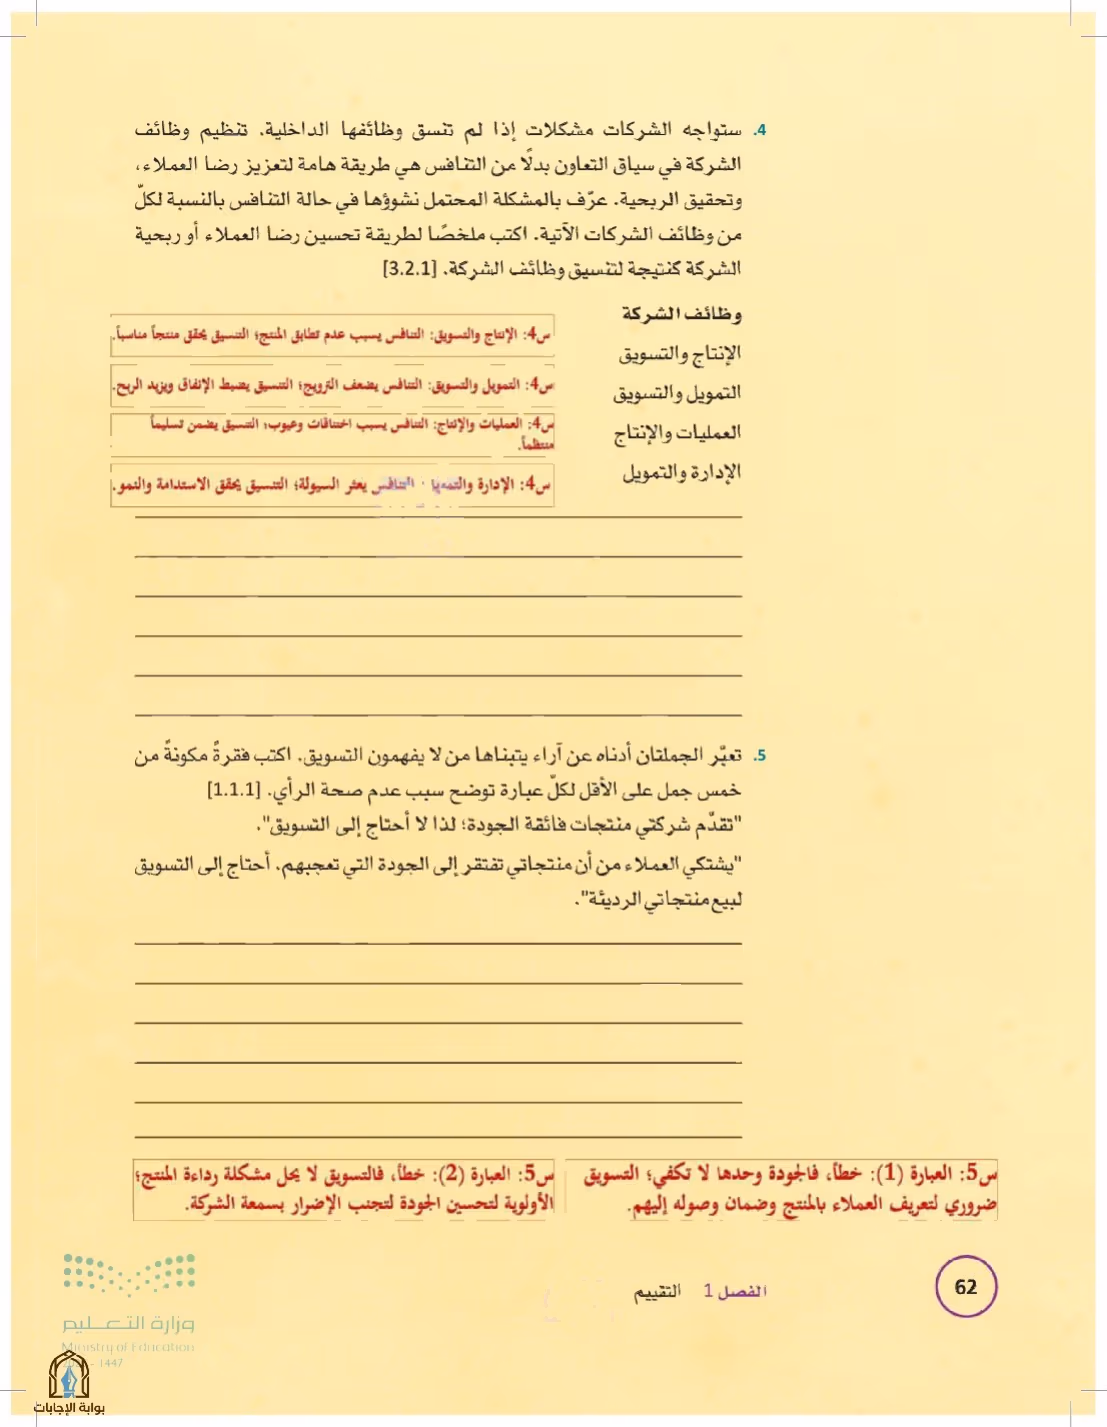 4. ستواجه الشركات مشكلات إذا لم تنسق وظائفها الداخلية. تنظيم وظائف
الشركة في سياق التعاون بدلًا من التنافس هي طريقة هامة لتعزيز رضا العملاء،
وتحقيق الربحية. عرّف بالمشكلة المحتمل نشوؤها في حالة التنافس بالنسبة لكلّ
من وظائف الشركات الآتية. اكتب ملخصًا لطريقة تحسين رضا العملاء أو ربحية
الشركة كنتيجة لتنسيق وظائف الشركة. [3.2.1]
وظائف الشركة
الإنتاج والتسويق
س4: الإنتاج والتسويق: التنافس يسبب عدم تطابق المنتج؛ التنسيق يحقق منتجاً مناسباً.
التمويل والتسويق
س4: التمويل والتسويق: التنافس يضعف الترويج؛ التنسيق يضبط الإنفاق ويزيد الربح.
العمليات والإنتاج
س4: العمليات والإنتاج: التنافس يسبب اختناقات وعيوب؛ التنسيق يضمن تسليماً
منتظماً.
الإدارة والتمويل
س4: الإدارة والتمويل: التنافس يعثر السيولة؛ التنسيق يحقق الاستدامة والنمو.
5. تعبّر الجملتان أدناه عن آراء يتبناها من لا يفهمون التسويق. اكتب فقرةً مكونةً من
خمس جمل على الأقل لكلّ عبارة توضح سبب عدم صحة الرأي. [1.1.1]
"تقدّم شركتي منتجات فائقة الجودة؛ لذا لا أحتاج إلى التسويق".
"يشتكي العملاء من أن منتجاتي تفتقر إلى الجودة التي تعجبهم. أحتاج إلى التسويق
لبيع منتجاتي الرديئة".
س5: العبارة (1): خطأ، فالجودة وحدها لا تكفي؛ التسويق
ضروري لتعريف العملاء بالمنتج وضمان وصوله إليهم.
س5: العبارة (2): خطأ، فالتسويق لا يحل مشكلة رداءة المنتج؛
الأولوية لتحسين الجودة لتجنب الإضرار بسمعة الشركة.
62
الفصل 1 التقييم
وزارة التعليم
Ministry of Education
- 1447
بوابة الإجابات